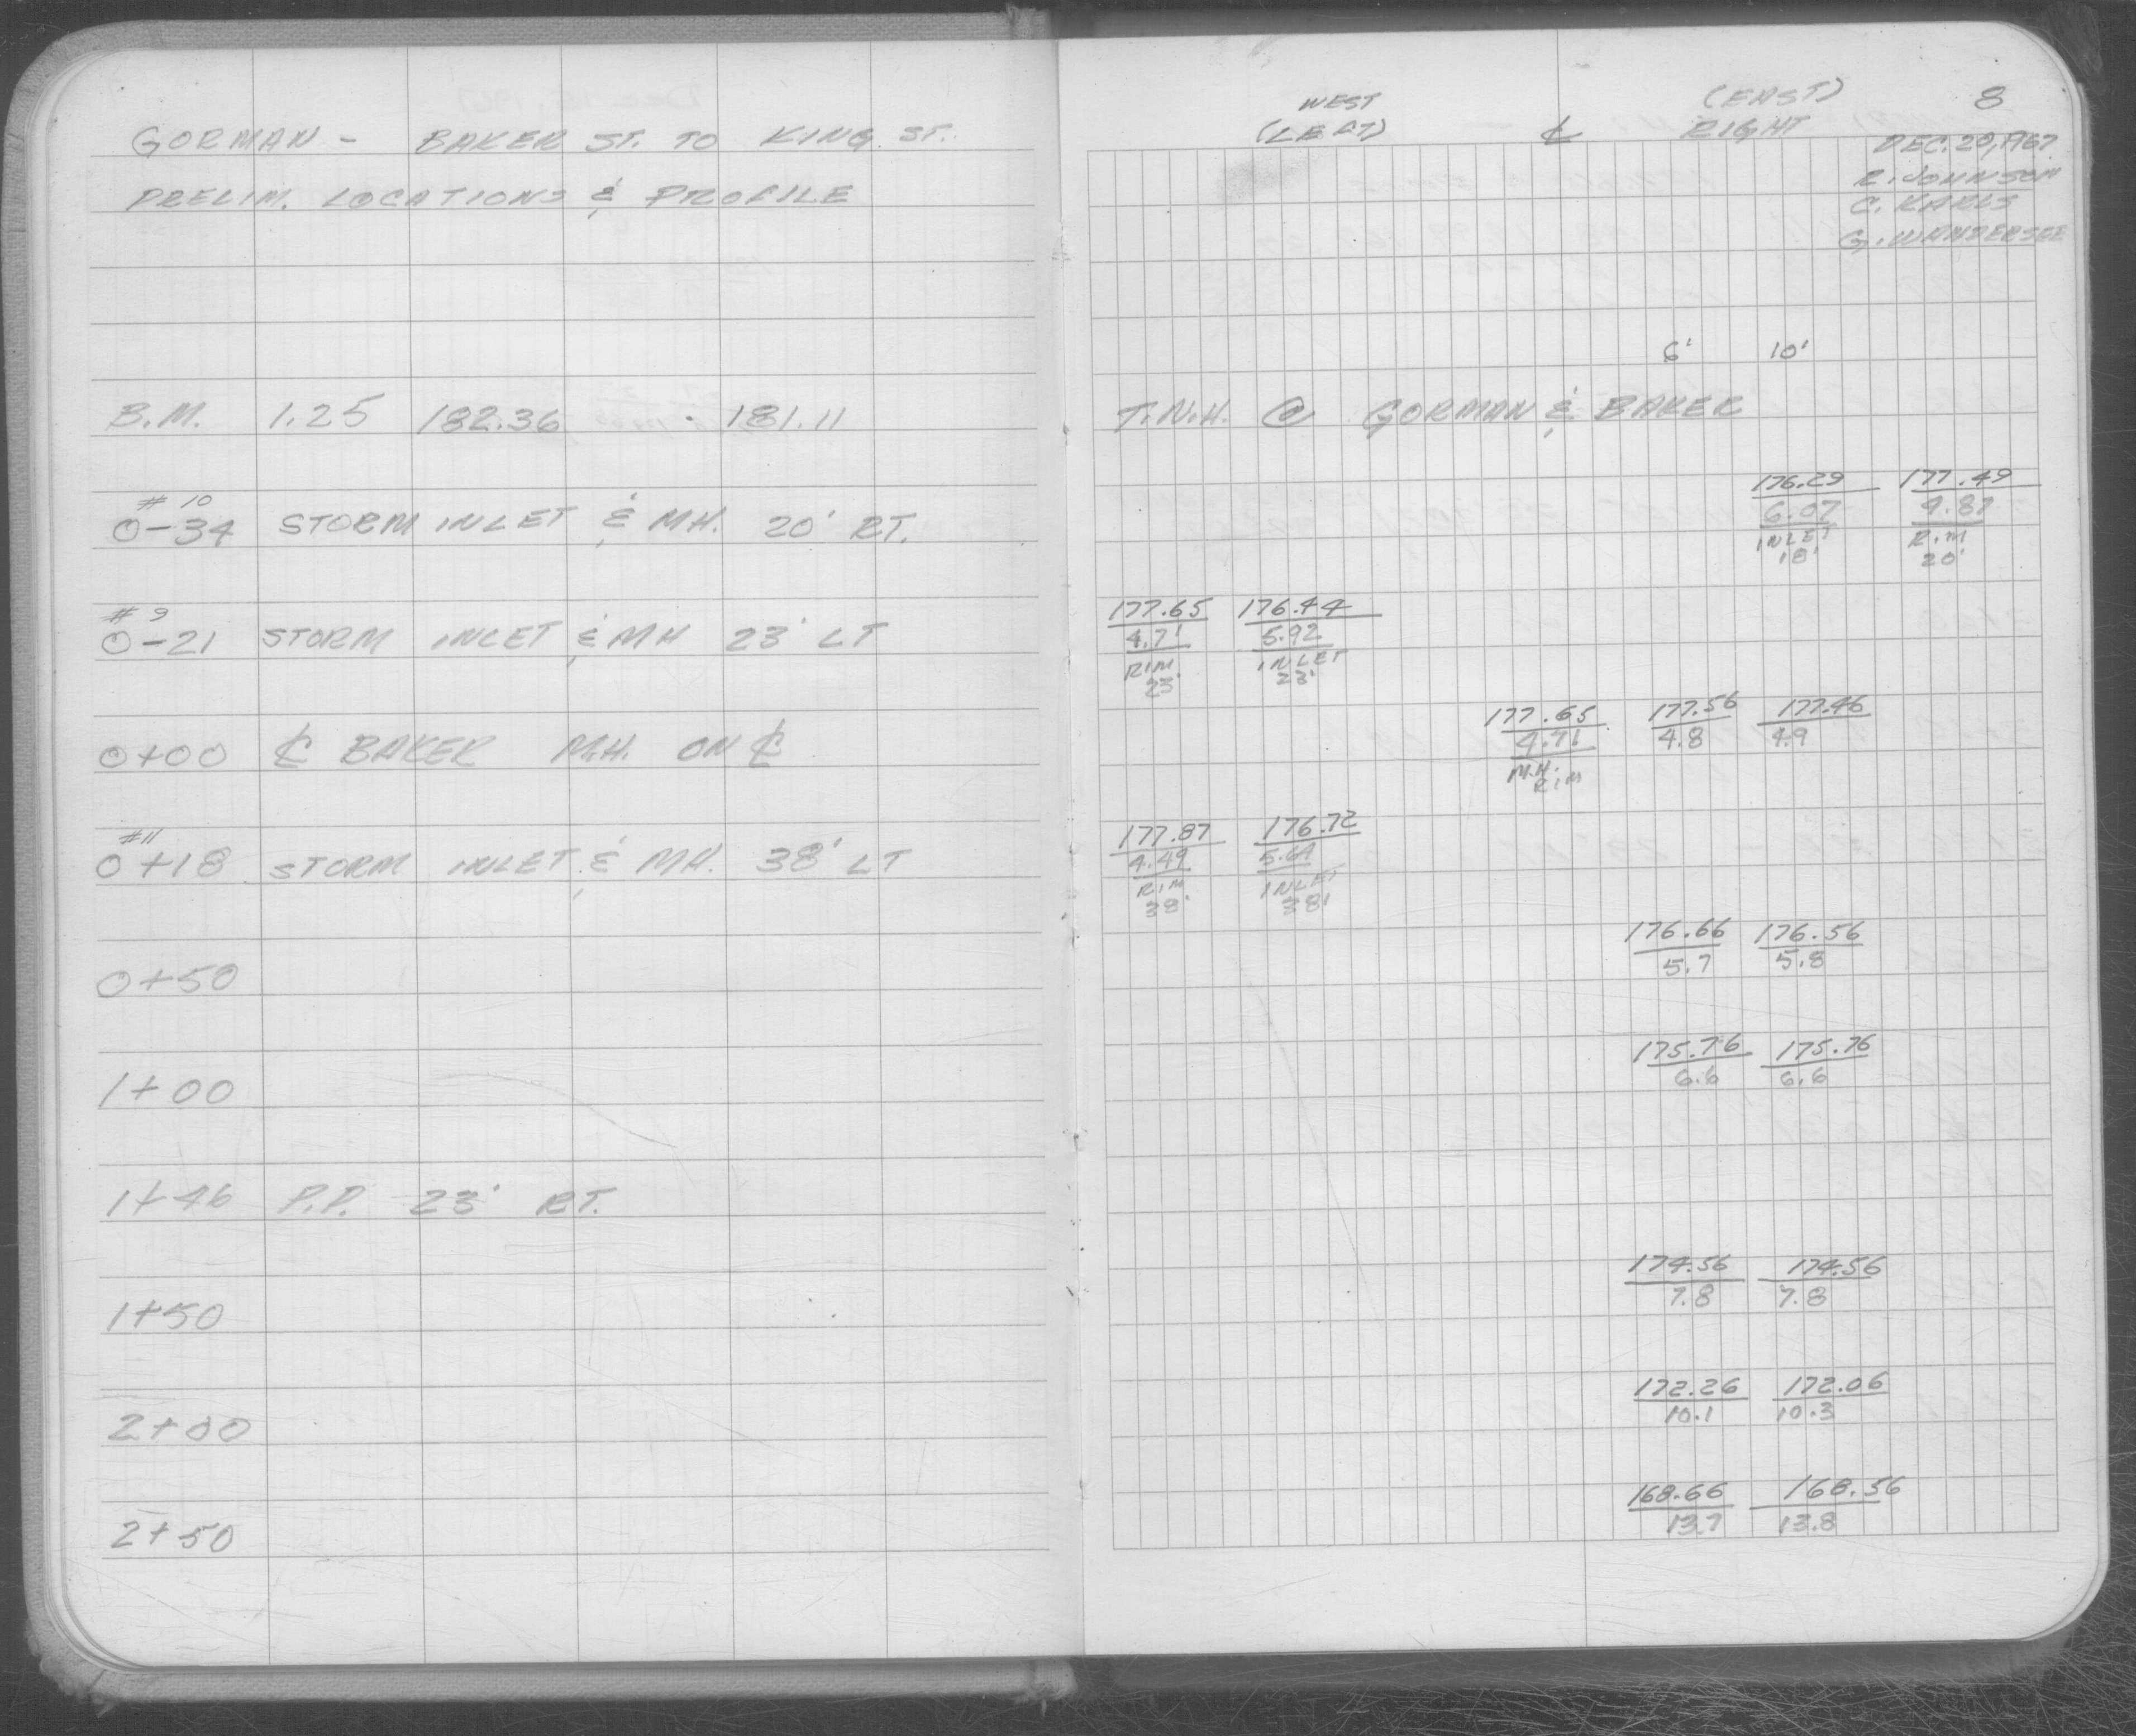 GORMAN - BAKER ST. TO KING ST.
PRELIM. LOCATIONS & PROFILE
B.M. 1.25 182.36 181.11
#10
0-34 STORM INLET & MH. 20' RT.
#9
0-21 STORM INLET & MH 23' LT
0+00 ℄ BAKER M.H. ON ℄
#11
0+18 STORM INLET & MH. 38' LT
0+50
1+00
1+46 P.P. 23' RT.
1+50
2+00
2+50
WEST (EAST) 8
(LEFT) ℄ RIGHT
DEC. 20, 1967
R. JOHNSON
C. KARLS
G. WANDERSEE
6' 10'
T.N.H. @ GORMAN & BAKER
176.29 177.49
6.07 4.87
INLET RIM
18' 20'
177.65 176.44
4.71 5.92
RIM INLET
23' 23'
177.65 177.56 177.46
4.71 4.8 4.9
M.H.
RIM
177.87 176.72
4.49 5.64
RIM INLET
38' 38'
176.66 176.56
5.7 5.8
175.76 175.76
6.6 6.6
174.56 174.56
7.8 7.8
172.26 172.06
10.1 10.3
168.66 168.56
13.7 13.8